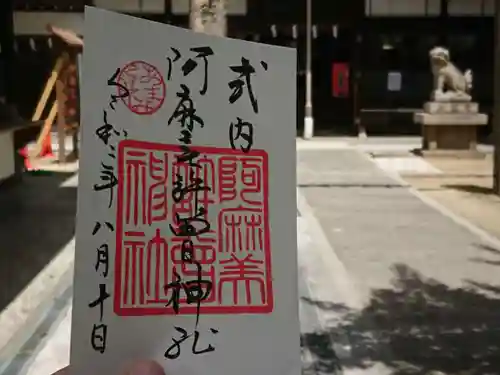 式内
阿麻美許曽神社
阿麻美
許曽
神社
令和二年八月十日